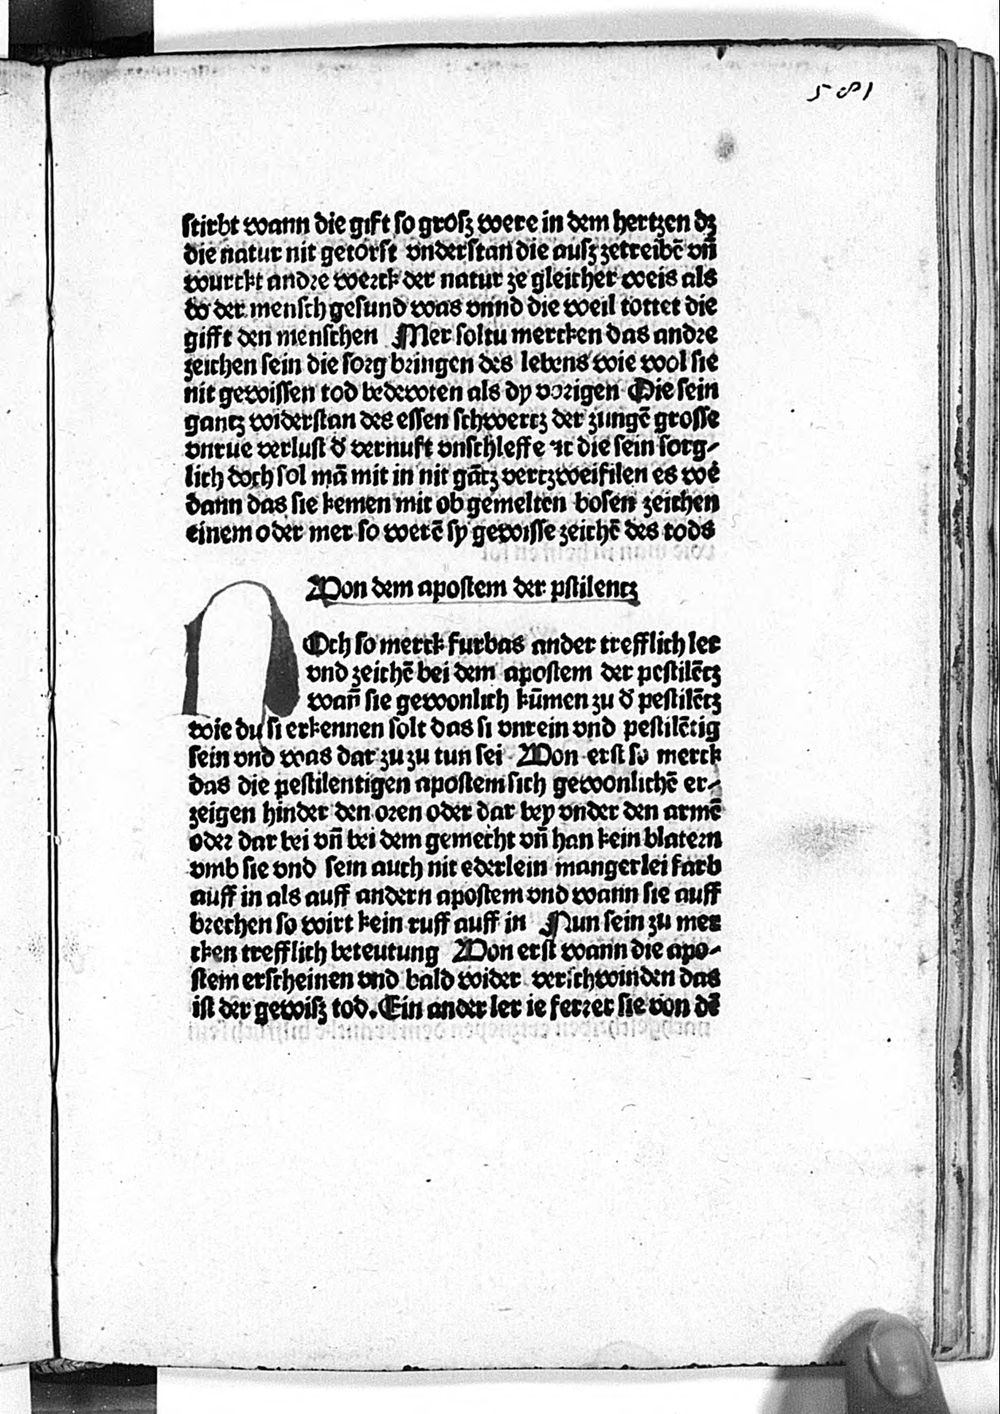 581
stirbt wann die gift so grosz were in dem hertzen dz
die natur nit getorst vnderstan die ausz zetreibē vn̄
wurckt andre werck der natur ze gleicher weis als
do der mensch gesund was vnnd die weil tottet die
gifft den menschen Mer soltu mercken das andre
zeichen sein die sorg bringen des lebens wie wol sie
nit gewissen tod bedewten als dy vorigen Die sein
gantz widerstan des essen schwertz der zungē grosse
vnrue verlust d̄ vernuft vnschleffe ⁊c die sein sorg-
lich doch sol mā mit in nit gātz vertzweifilen es wē
dann das sie kemen mit ob gemelten bosen zeichen
einem oder mer so werē sy gewisse zeichē des tods
Von dem apostem der pstilentz
Och so merck furbas ander trefflich ler
vnd zeichē bei dem apostem der pestilētz
wan̄ sie gewonlich kūmen zu d̄ pestilētz
wie du si erkennen solt das si vnrein vnd pestilētig
sein vnd was dar zu zu tun sei Von erst so merck
das die pestilentigen apostem sich gewonlichē er-
zeigen hinder den oren oder dar bey vnder den armē
oder dar bei vn̄ bei dem gemecht vn̄ han kein blatern
vmb sie vnd sein auch nit ederlein mangerlei farb
auff in als auff andern apostem vnd wann sie auff
brechen so wirt kein ruff auff in Nun sein zu mer
cken trefflich beteutung Von erst wann die apo-
stem erscheinen vnd bald wider verschwinden das
ist der gewisz tod. Ein ander ler ie ferrer sie von dē